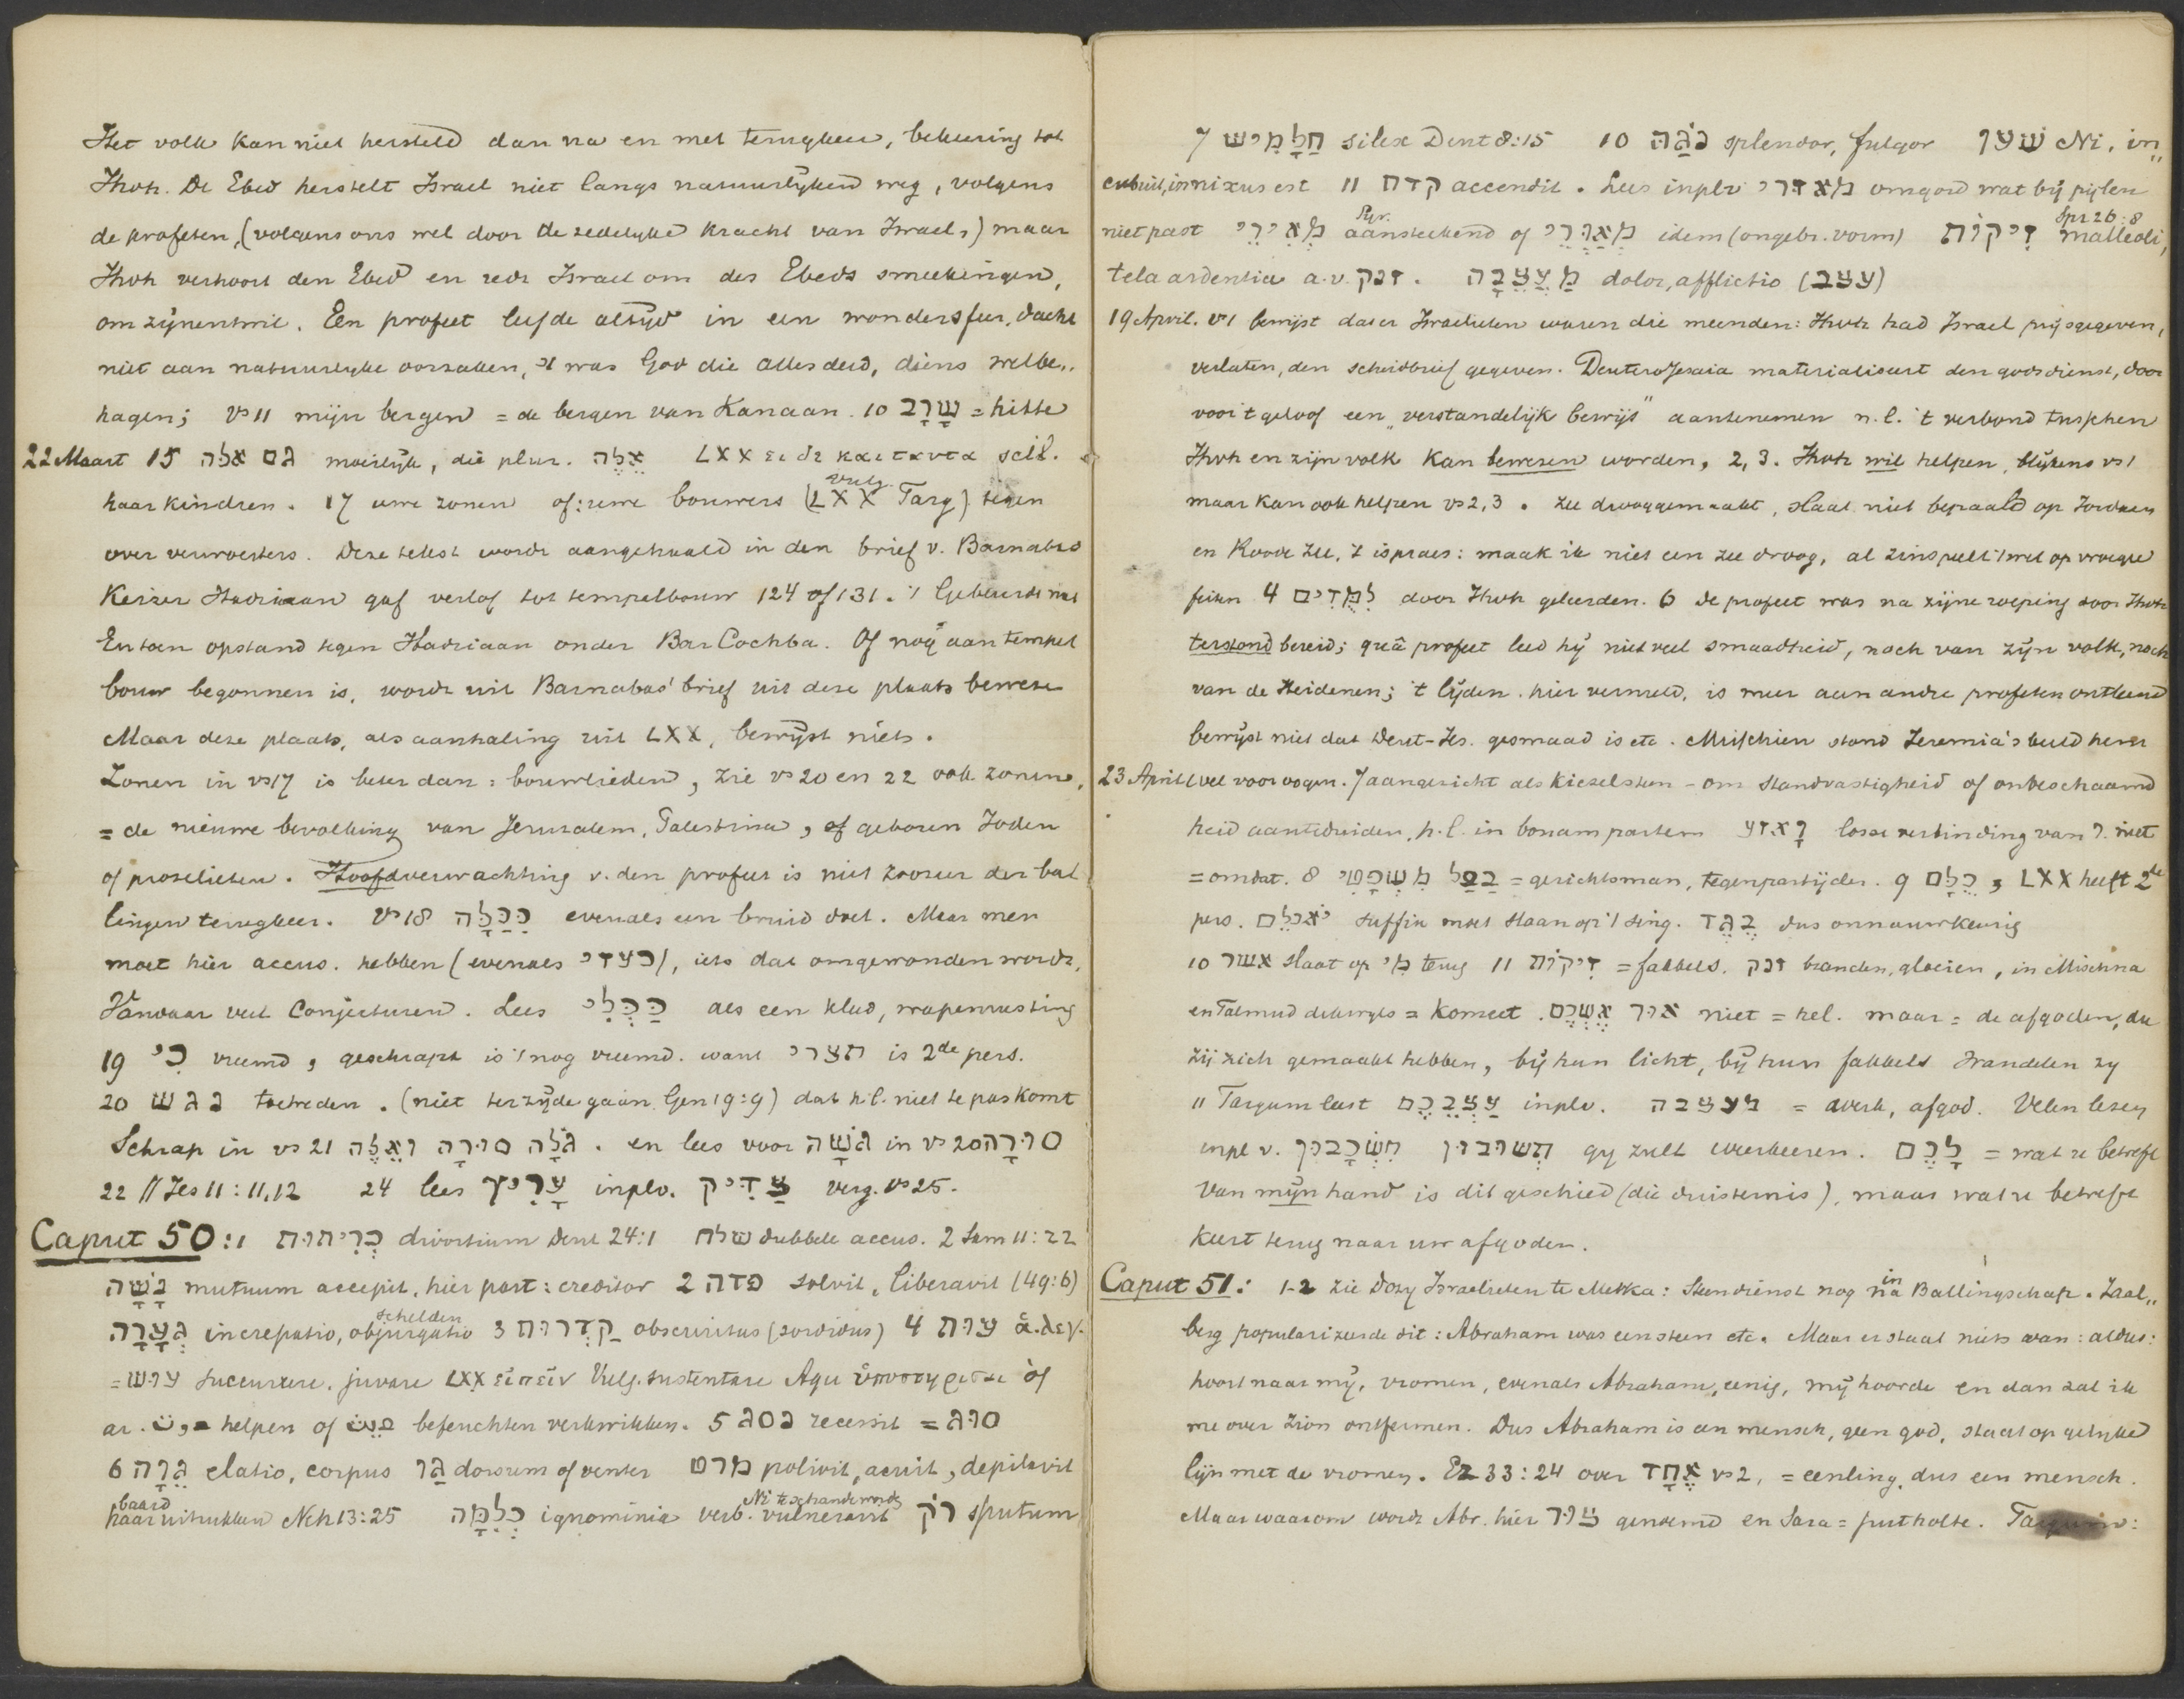 Het volk kan niet hersteld dan na en met terugkeer, bekeering tot
Jhvh. De Ebed herstelt Israel niet langs natuurlyken weg, volgens
de profeten, (volgens ons wel door de zedelyke kracht van Israel,) maar
Jhvh verhoort den Ebed en redt Israel om des Ebeds smeekingen,
om zynentwil. Een profeet leefde altyd in een wondersfeer, dacht
niet aan natuurlyke oorzaken, 't was God die alles deed, diens welbe„
hagen; vs 11 mijn bergen = de bergen van Kanaan. 10 שָׁרָב = hitte
22 Maart 15 גם אלה moeilyk, die plur. אֵלֶּה LXX ει δε και ταυτα scil.
haar kindren. 17 uwe zonen of: uwe bouwers (LXX Vulg. Targ) tegen
over verwoesters. Deze tekst wordt aangehaald in den brief v. Barnabas
Keizer Hadriaan gaf verlof tot tempelbouw 124 of 131. 't Gebeurde niet
En toen opstand tegen Hadriaan onder Bar Cochba. Of nog aan tempel
bouw begonnen is, wordt uit Barnabas' brief uit deze plaats beweze
Maar deze plaats, als aanhaling uit LXX, bewyst niets.
Zonen in vs 17 is beter dan: bouwlieden, zie vs 20 en 22 ook zonen,
= de nieuwe bevolking van Jeruzalem, Palestina, of geboren Joden
of proselieten. Hoofdverwachting v. den profeet is niet zoozeer der bal
lingen terugkeer. vs 18 כַּכַּלָּה evenals een bruid doet. Maar men
moet hier accus. hebben (evenals כעדי), iets dat omgewonden wordt,
Vandaar veel Conjecturen. Lees כַּכְּלִי als een kleed, wapenrusting
19 כִּי vreemd, geschrapt is 't nog vreemd. want תצרי is 2de pers.
20 נגש toetreden. (niet terzyde gaan Gen 19:9) dat h.l. niet te pas komt
Schrap in vs 21 גֹּלָה סוּרָה וְאֵלֶּה. en lees voor גְּשָׁה in vs 20 סוּרָה
22 // Jes 11:11,12 24 lees עָרִיץ inplv. צַדִּיק verg. vs 25.
Caput 50:1 כְּרִיתוּת divortium Deut 24:1 שלח dubbele accus. 2 Sam 11:22
נָשָׁה mutuum accepit, hier part: creditor 2 פדה solvit, liberavit (49:6)
גְּעָרָה increpatio, objurgatio schelden 3 קַדְרוּת obscuritas (sordidus) 4 עות ἁ.λεγ.
= עוש succurrere, juvare LXX εἰπεῖν Vulg. sustentare Aqu ὑποστηρίσαι òf
ar. helpen of befeuchten verkwikken. 5 נסג recessit = סוּג
6 גֵּוָה elatio, corpus גַּו dorsum of venter מרט polivit, acuit, depilavit
baard haar uitrukken Neh 13:25 כְּלִמָּה ignominia verb. vulneravit Ni te schande wordt רֹק sputum
7 חַלָּמִישׁ silex Deut 8:15 10 נֹגַהּ splendor, fulgor שׁען Ni. in„
cubuit, innixus est 11 קדח accendit. Lees inplv מאזרי omgord wat bij pijlen
niet past מְאִירֵי Syr. aanstekend of מְאַוְּרֵי idem (ongebr. vorm) זִיקוֹת Spr 26:8 malleoli,
tela ardentia a.v. זנק. מַעֲצֵבָה dolor, afflictio (עצב)
19 April. vs 1 bewijst dat er Israelieten waren die meenden: Jhvh had Israel prijsgegeven,
verlaten, den scheidbrief gegeven. DeuteroJesaia materialiseert den godsdienst, door
voor 't geloof een „verstandelijk bewijs" aantenemen n.l. 't verbond tusschen
Jhvh en zijn volk kan bewezen worden, 2,3. Jhvh wil helpen, blijkens vs 1
maar kan ook helpen vs 2,3. Zee drooggemaakt, slaat niet bepaald op Jordaan
en Roode Zee, 't is praes: maak ik niet een zee droog, al zinspeelt 't wel op vroegere
feiten 4 לִמּוּדִים door Jhvh geleerden. 6 de profeet was na zijne roeping door Jhvh
terstond bereid; quâ profeet leed hij niet veel smaadheid, noch van zijn volk, noch
van de Heidenen; 't lijden, hier vermeld, is meer aan andre profeten ontleend
bewijst niet dat Deut-Jes. gesmaad is etc. Misschien stond Jeremia's beeld hem
23 April (vel voor oogen. 7 aangezicht als kiezelsteen - om standvastigheid of onbeschaamd
heid aanteduiden, h.l. in bonam partem וָאֵדַע losse verbinding van ו. niet
= omdat. 8 בַּעַל מִשְׁפָּטִי = gerichtsman, tegenpartijder. 9 כֻּלָּם, LXX heeft 2de
pers. יֹאכְלֵם suffix moet slaan op 't sing. בֶּגֶד dus onnauwkeurig
10 אשר slaat op מִי terug 11 זִיקוֹת = fakkels. זנק branden, gloeien, in Mischna
en Talmud = komeet. אוּר אֶשְׁכֶם niet = hel. maar = de afgoden, die
zij zich gemaakt hebben, bij hun licht, bij hun fakkels wandelen zy
11 Targum leest עַצַּבְּכֶם inplv. מעצבה = werk, afgod. Velen lezen
inpl v. תִּשְׁכָּבוּן תְּשׁוּבוּן gy zult weerkeeren. לָכֶם = wat u betreft
Van mijn hand is dit geschied (die duisternis), maar wat u betreft
keert terug naar uw afgoden.
Caput 51: 1-2 zie Dozy Israelieten te Mekka: Steendienst nog in na Ballingschap. Zaal„
berg populariseerde dit: Abraham was een steen etc. Maar er staat niets van: aldus:
hoort naar mij, vromen, evenals Abraham, eenig, mij hoorde en dan zal ik
me over Zion ontfermen. Dus Abraham is een mensch, geen god, staat op gelijke
lijn met de vromen. Ez 33:24 over אֶחָד vs 2, = eenling, dus een mensch.
Maar waarom wordt Abr. hier צוּר genoemd en Sara = putholte. Targum: